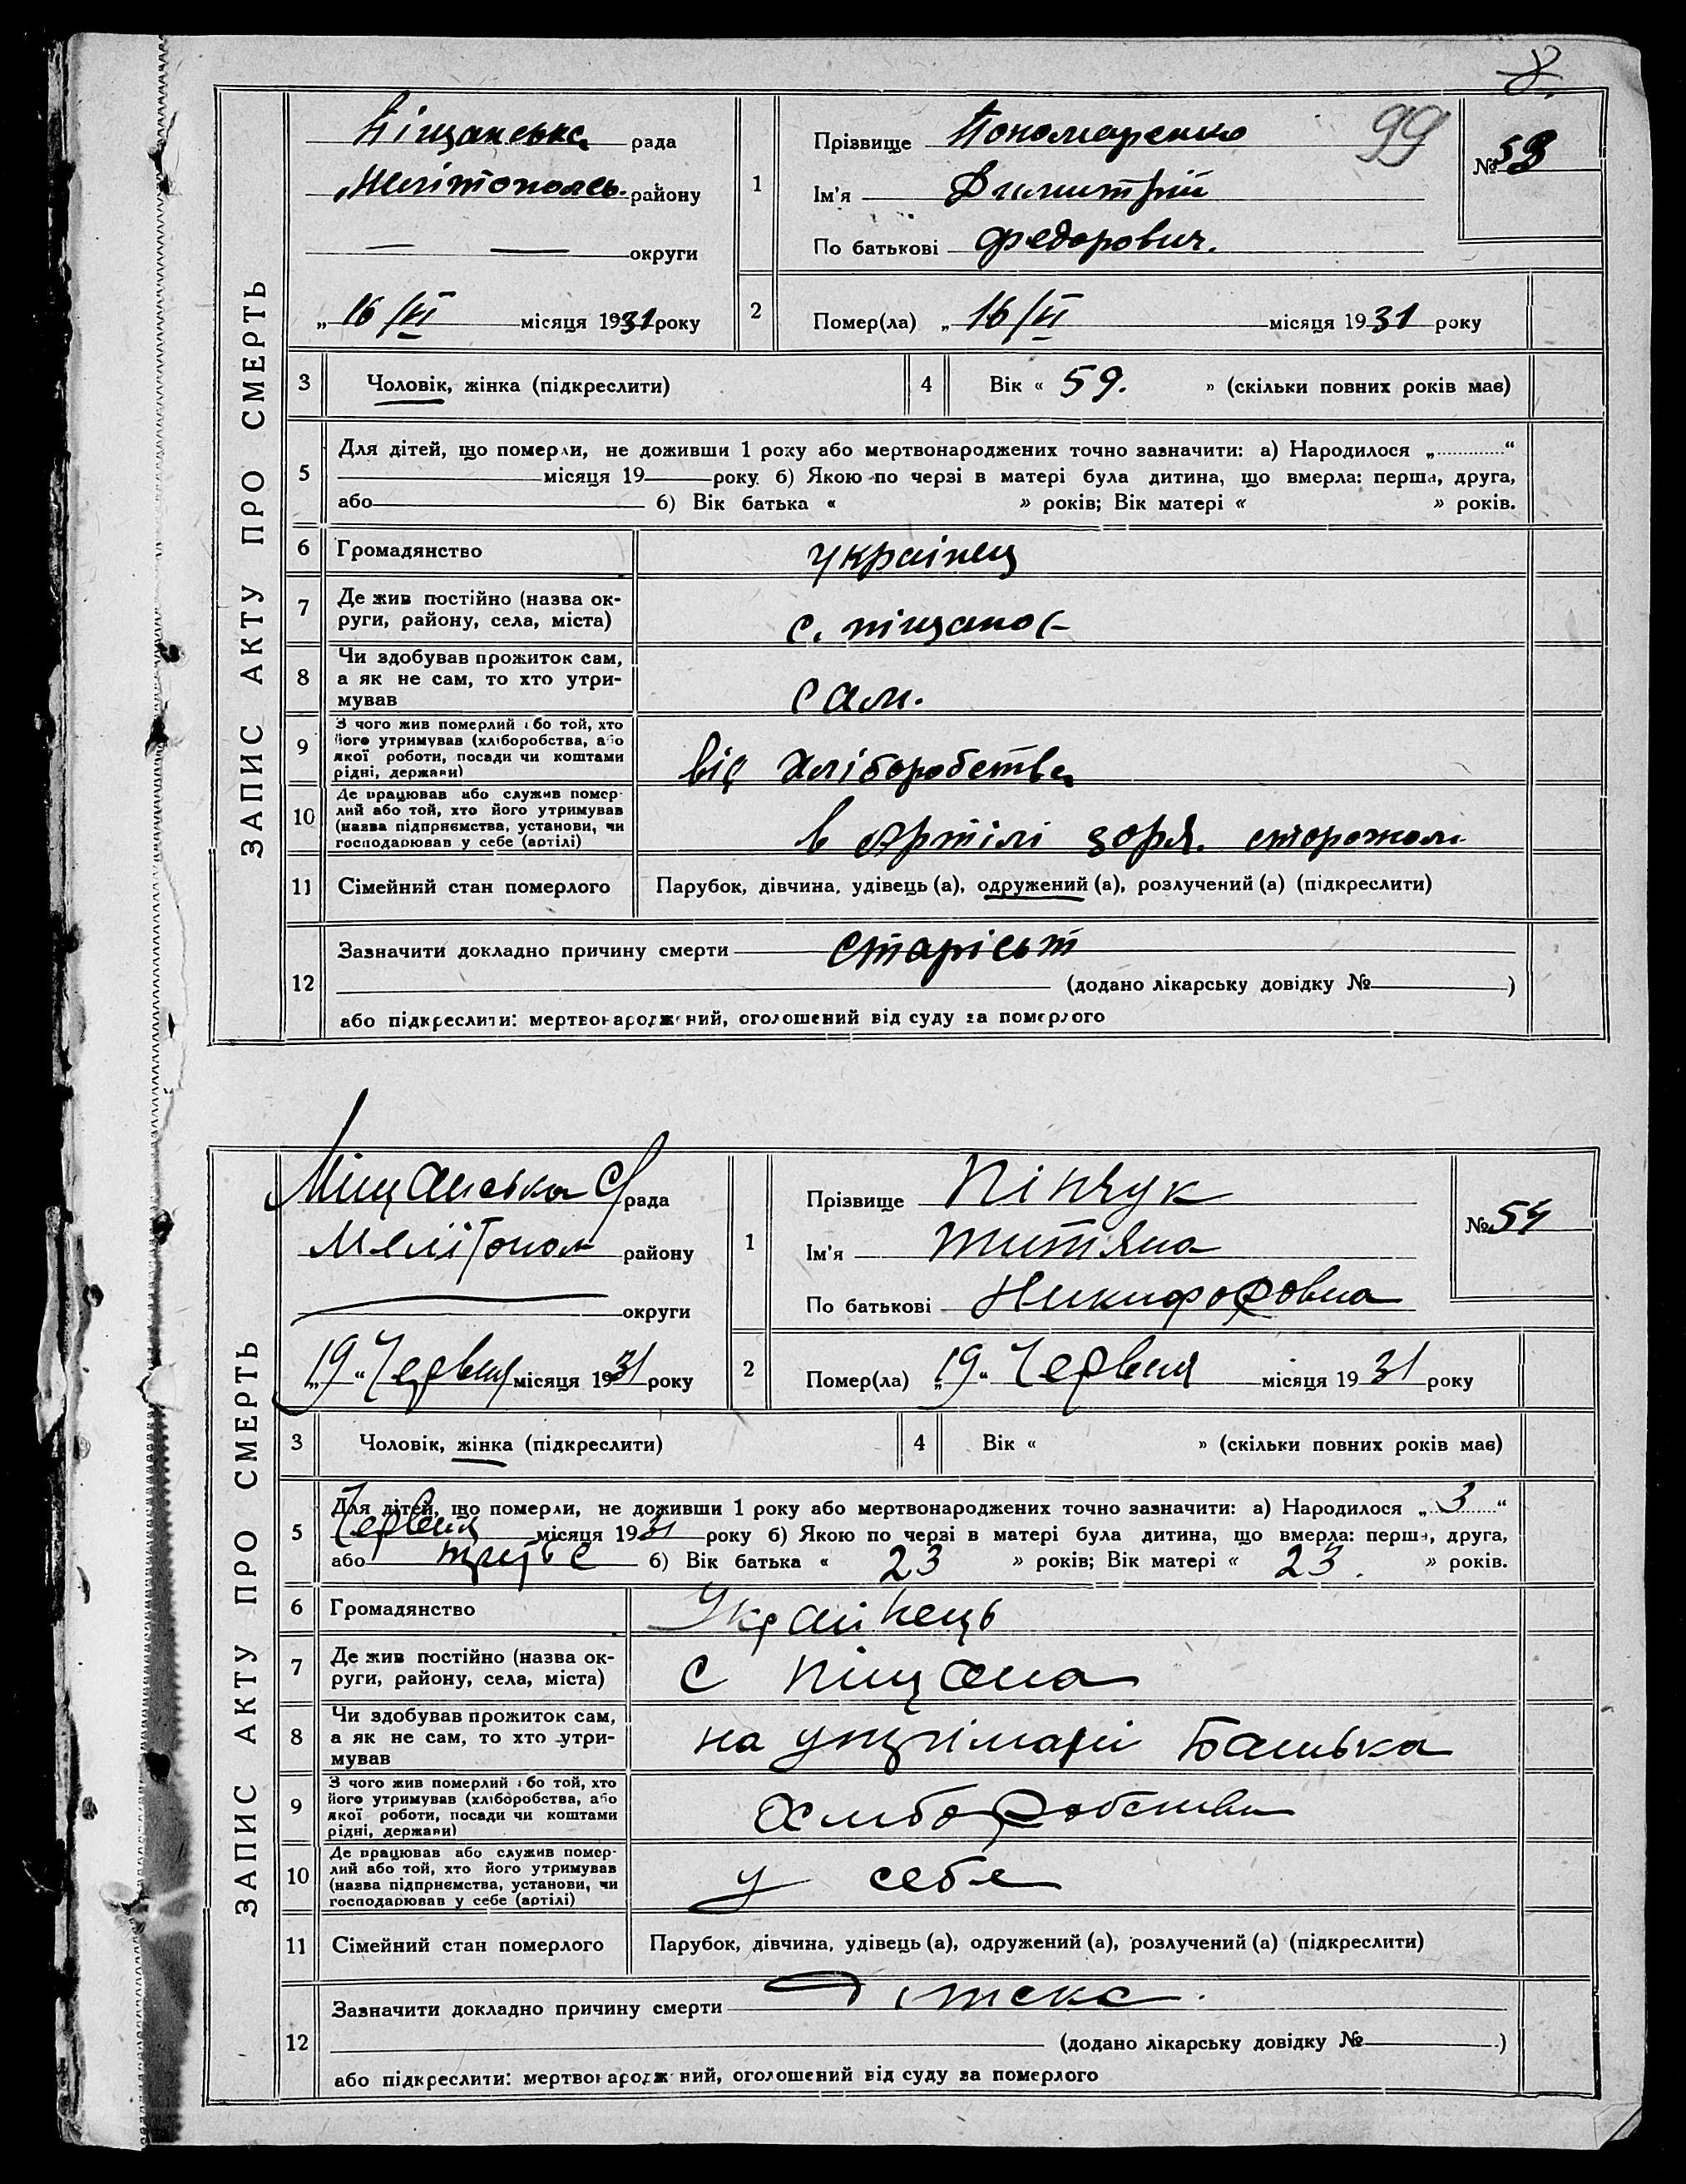 99
ЗАПИС АКТУ ПРО СМЕРТЬ
Піщанська рада
Мелітополь. району
округи
„16/VI місяця 1931 року
1
Прізвище Пономаренко
Ім'я Димитрій
По батькові Федорович.
№ 53
2
Помер(ла) „16/VI місяця 1931 року
3 Чоловік, жінка (підкреслити)
4 Вік « 59. » (скільки повних років має)
5
Для дітей, що померли, не доживши 1 року або мертвонароджених точно зазначити: а) Народилося „ “
місяця 19 року б) Якою по черзі в матері була дитина, що вмерла: перша, друга,
або б) Вік батька « » років; Вік матері « » років.
6 Громадянство українец
7 Де жив постійно (назва ок-
руги, району, села, міста)
с.
8 Чи здобував прожиток сам,
а як не сам, то хто утри-
мував
сам.
9 З чого жив померлий або той, хто
його утримував (хліборобства, або
якої роботи, посади чи коштами
рідні, держави)
від хліборобства
10 Де працював або служив помер-
лий або той, хто його утримував
(назва підприємства, установи, чи
господарював у себе (артілі)
в Артілі зоря. сторожом
11 Сімейний стан померлого Парубок, дівчина, удівець (а), одружений (а), розлучений (а) (підкреслити)
12
Зазначити докладно причину смерти старість
(додано лікарську довідку № )
або підкреслити: мертвонароджений, оголошений від суду за померлого
ЗАПИС АКТУ ПРО СМЕРТЬ
Піщанська С рада
Мелітопол району
округи
„19“ Червня місяця 1931 року
1
Прізвище Пінчук
Ім'я Титяна
По батькові Никифоровна
№ 54
2
Помер(ла) „19“ Червня місяця 1931 року
3 Чоловік, жінка (підкреслити)
4 Вік « » (скільки повних років має)
5
Для дітей, що померли, не доживши 1 року або мертвонароджених точно зазначити: а) Народилося „3“
Червня місяця 1931 року б) Якою по черзі в матері була дитина, що вмерла: перша, друга,
або б) Вік батька « 23 » років; Вік матері « 23. » років.
6 Громадянство Українець
7 Де жив постійно (назва ок-
руги, району, села, міста)
с Піщана
8 Чи здобував прожиток сам,
а як не сам, то хто утри-
мував
на утрімані Батька
9 З чого жив померлий або той, хто
його утримував (хліборобства, або
якої роботи, посади чи коштами
рідні, держави)
Хлиборобства
10 Де працював або служив помер-
лий або той, хто його утримував
(назва підприємства, установи, чи
господарював у себе (артілі)
у себе
11 Сімейний стан померлого Парубок, дівчина, удівець (а), одружений (а), розлучений (а) (підкреслити)
12
Зазначити докладно причину смерти
(додано лікарську довідку № )
або підкреслити: мертвонароджений, оголошений від суду за померлого